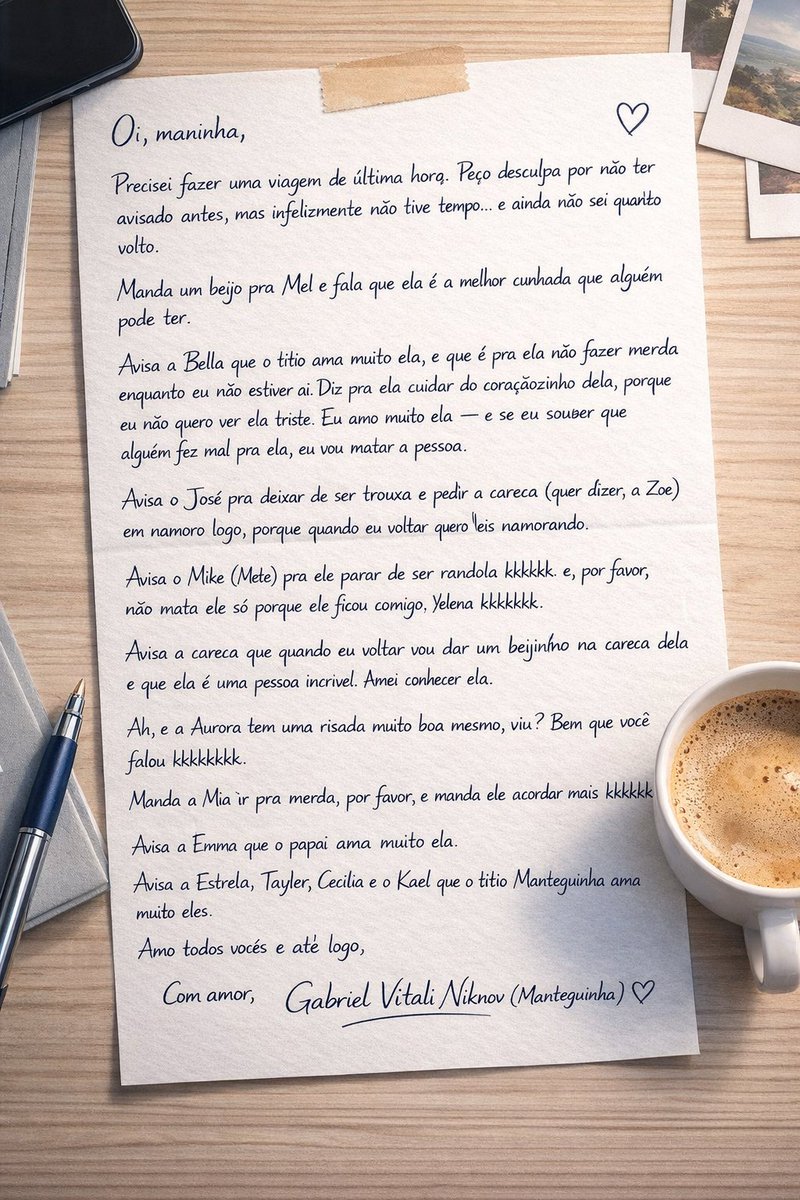 Oi, maninha,
Precisei fazer uma viagem de última hora. Peço desculpa por não ter
avisado antes, mas infelizmente não tive tempo... e ainda não sei quanto
volto.
Manda um beijo pra Mel e fala que ela é a melhor cunhada que alguém
pode ter.
Avisa a Bella que o titio ama muito ela, e que é pra ela não fazer merda
enquanto eu não estiver ai. Diz pra ela cuidar do coraçãozinho dela, porque
eu não quero ver ela triste. Eu amo muito ela — e se eu souber que
alguém fez mal pra ela, eu vou matar a pessoa.
Avisa o José pra deixar de ser trouxa e pedir a careca (quer dizer, a Zoe)
em namoro logo, porque quando eu voltar quero leis namorando.
Avisa o Mike (Mete) pra ele parar de ser randola kkkkkk. e, por favor,
não mata ele só porque ele ficou comigo, Yelena kkkkkkk.
Avisa a careca que quando eu voltar vou dar um beijinho na careca dela
e que ela é uma pessoa incrivel. Amei conhecer ela.
Ah, e a Aurora tem uma risada muito boa mesmo, viu? Bem que você
falou kkkkkkkk.
Manda a Mia ir pra merda, por favor, e manda ele acordar mais kkkkkk
Avisa a Emma que o papai ama muito ela.
Avisa a Estrela, Tayler, Cecilia e o Kael que o titio Manteguinha ama
muito eles.
Amo todos vocés e até logo,
Com amor, Gabriel Vitali Niknov (Manteguinha) ♡